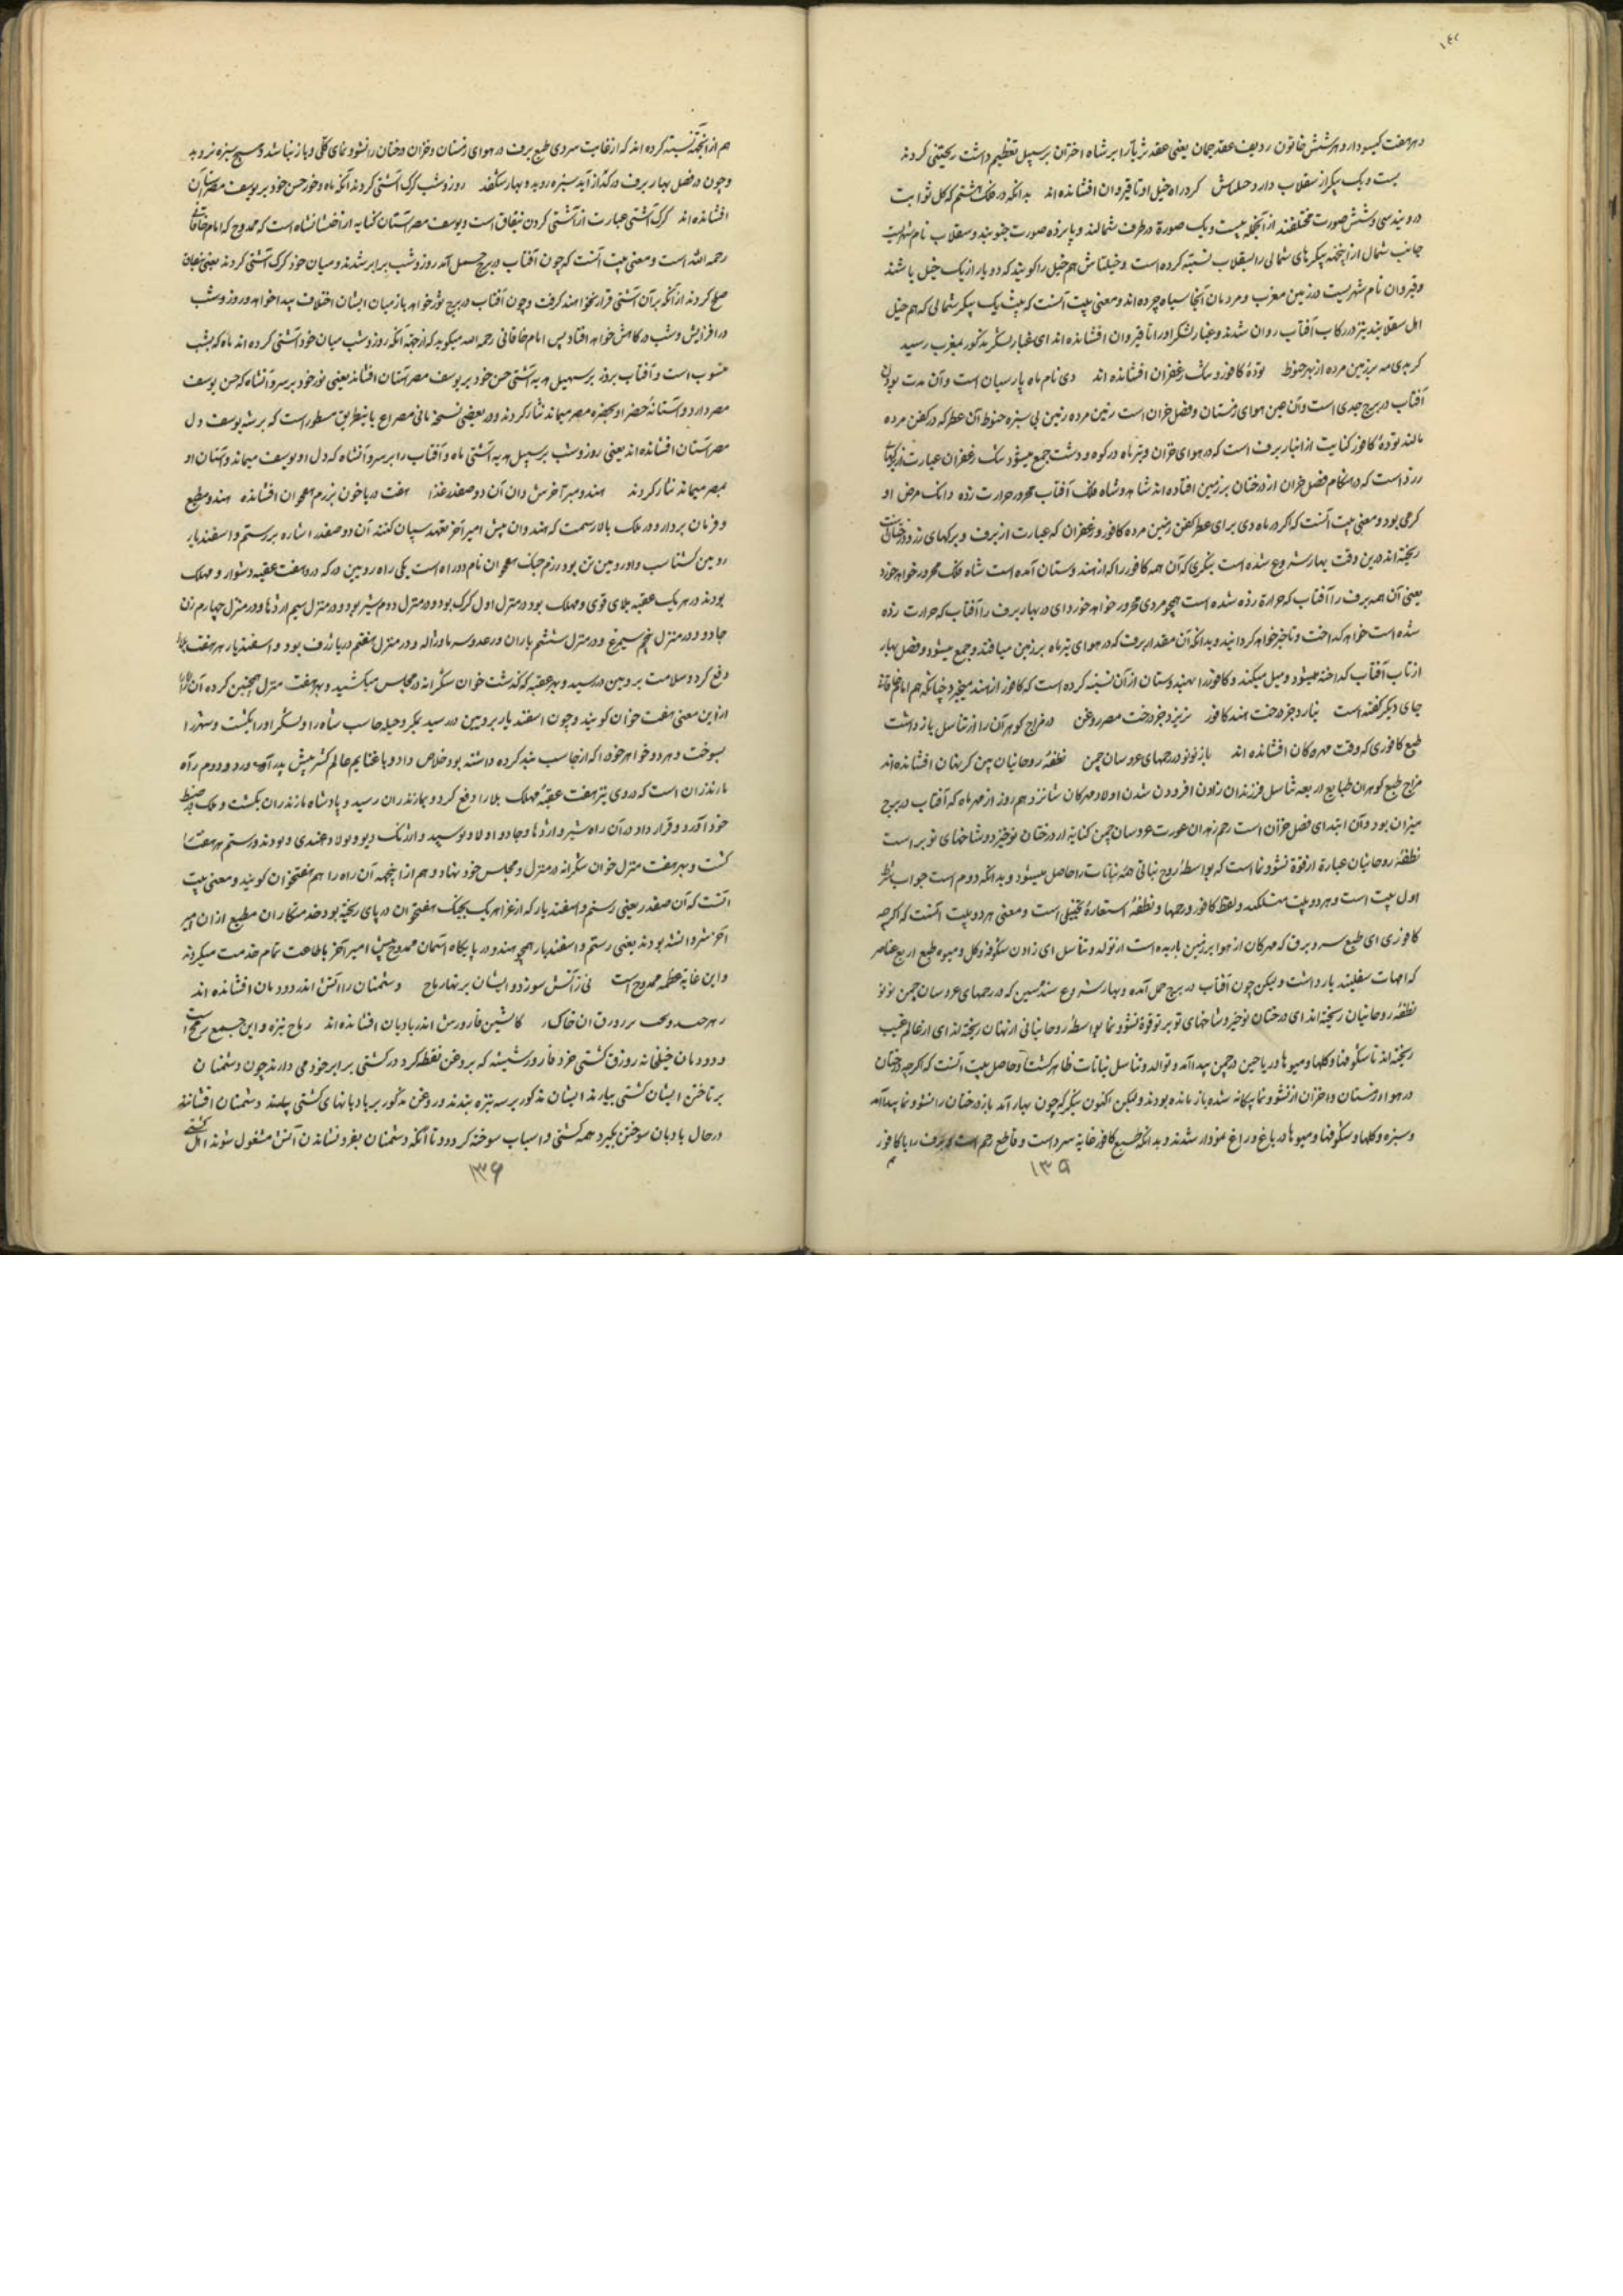 ۱٤۲
در هر هفت گیسو دار و هر شش خاتون ردیف عقد جمان یعنی عقد ثریا را بر شاه اختران بر سبیل تعظیم داشت ریختنی کردند
بیست و یک پیکر از سقلاب دارد خیلتاش گرد راه خیل او تا قیروان افشانده اند بدانکه در فلک هشتم که کل ثوابت
درویند سی و شش صورت مختلفند از آنجمله بیست و یک صورة در طرف شمالند و پانزده صورت جنوبیند و سقلاب نام شهریست
جانب شمال از اینجهة پیکرهای شمالی را بسقلاب نسبت کرده است و خیلتاش هم خیل را گویند که دو یار از یک خیل باشند
و قیروان نام شهریست در زمین مغرب و مردمان آنجا سیاه چرده اند و معنی بیت آنست که بیست یک پیکر شمالی که هم خیل
اهل سقلابند نیز در رکاب آفتاب روان شدند و غبار لشکر او را تا قیروان افشانده اند ای غبار لشکر مذکور بمغرب رسید
گر بدی مه بر زمین مرده از بهر حنوط تودهٔ کافور و تنگ زعفران افشانده اند دی نام ماه پارسیان است و آن مدت بودن
آفتاب در برج جدی است و آن عین هوای زمستان و فصل خزان است زمین مرده زمین بی سبزه حنوط آن عطر که در کفن مرده
مالند تودهٔ کافور کنایت از انبار برف است که در هوای خزان و تیر ماه در کوه و دشت جمع میشود تنگ زعفران عبارت از برگهای
زرد است که در هنگام فصل خزان از درختان بر زمین افتاده اند شاهد و شاه فلک آفتاب محرور حرارت زده و آنک مرض او
گرمی بود و معنی بیت آنست که اگر در ماه دی برای عطر کفن زمین مرده کافور و زعفران که عبارت از برف و برگهای زرد درختان است
ریخته اند درین وقت بهار شروع شده است بنگری که آن همه کافور را که از هندوستان آمده است شاه فلک محرور خواهد خورد
یعنی آن همه برف را آفتاب که حرارة زده شده است همچو مردی محرور خواهد خورد ای در بهار برف را آفتاب که حرارت زده
شده است خواهد گداخت و ناچیز خواهد گردانید و بدانکه آن مقدار برف که در هوای تیرماه بر زمین میافتد و جمع میشود و فصل بهار
از تاب آفتاب گداخته میشود و میل میکند و کافور را بهندوستان از آن نسبت کرده است که کافور از هند میخیزد چنانکه هم امام خاقانی
جای دیگر گفته است بنارد جز درخت هند کافور نریزد جز درخت مصر روغن در مزاج گوهران را از تناسل باز داشت
طبع کافوری که وقت مهرگان افشانده اند باز نو نو در رحمهای عروسان چمن نطفهٔ روحانیان بین کز نهان افشانده اند
مزاج طبع گوهران طبایع اربعه تناسل فرزندان زادن افزودن شدن اولاد مهرگان شانزدهم روز از مهر ماه که آفتاب در برج
میزان بود و آن ابتدای فصل خزان است رحم زهدان عورت عروسان چمن کنایه از درختان نوخیز و شاخهای نوبر است
نطفهٔ روحانیان عبارة از قوة نشو و نما است که بواسطهٔ روح نباتی همه نباتات را حاصل میشود و بدانکه دوم است جواب شرط
اول بیت است و هر دو بیت متسلکند و لفظ کافور و رحمها و نطفهٔ استعارهٔ تخییلی است و معنی هر دو بیت آنست که اگر چه
کافوری ای طبع سرد برف که مهرگان از هوا بر زمین باریده است از تولد و تناسل ای زادن شگوفه و گل و میوه طبع اربع عناصر
که امهات سفلیند باز داشت و لیکن چون آفتاب در برج حمل آمده و بهار شروع شد ببین که در رحمهای عروسان چمن نو نو
نطفهٔ روحانیان ریخته اند ای درختان نوخیز و شاخهای نوبر نو قوة نشو و نما بواسطهٔ روحانیانی از نهان ریخته اند ای از عالم غیب
ریخته اند تا شگوفها و گلها و میوها و ریاحین در چمن پیدا آمد و توالد و تناسل نباتات ظاهر گشت و حاصل بیت آنست که اگر چه درختان
در هوا و زمستان و خزان از نشو و نما بیگانه شده باز مانده بودند و لیکن اکنون بنگر که چون بهار آمد باز درختان را نشو و نما پیدا آمد
و سبزه و گلها و شگوفها و میوها در باغ و راغ نمودار شدند و بدانکه طبع کافور غایة سرد است و قاطع رحم است و برف را با کافور
۱۳۵
هم از اینجهة نسبت کرده اند که از غایت سردی طبع برف در هوای زمستان و خزان درختان را نشو و نمای کلی و باز نباشد و هیچ سبزه نروید
و چون در فصل بهار برف در گداز آید سبزه روید و بهار شگفد روز و شب گرگ آشتی کردند آنکه ماه و خور حسن خود بر یوسف مصرستان
افشانده اند گرگ آشتی عبارت از آشتی کردن بنفاق است و یوسف مصرستان کنایه از اخستانشاه است که ممدوح که امام خاقانی
رحمه الله است و معنی بیت آنست که چون آفتاب در برج حمل آمد روز و شب برابر شدند و میان خود گرگ آشتی کردند یعنی بنفاق
صلح کردند از آنکه بر آن آشتی قرار نخواهند گرفت و چون آفتاب در برج ثور خواهد باز میان ایشان اختلاف پیدا خواهد و روز و شب
در افزایش و شب در کاهش خواهد افتاد پس امام خاقانی رحمه الله میگوید که از جهة آنکه روز و شب میان خود آشتی کرده اند ماه که بشب
منسوب است و آفتاب بروز بر سبیل هدیه آشتی حسن خود بر یوسف مصرستان افشاند یعنی نور خود بر سر و آنشاه که حسن یوسف
مصر دارد و آستانهٔ حضراو بحضره مصر میماند نثار کردند و در بعضی نسخ ثانی مصراع باینطریق مسطور است که بر شه یوسف دل
مصرستان افشانده اند یعنی روز و شب بر سبیل هدیه آشتی ماه و آفتاب را بر سر و آنشاه که دل او بیوسف میماند و آستان او
بمصر میماند نثار کردند هندو میر آخرش دان آن دو صفدر غذا هفت دریا خون بزرم هفتخوان افشانده هندو مطیع
و فرمان بردار و در ملک بالا رسمت که هندوان پیش امیر آخر تعهد سپان کنند آن دو صفدر اشاره بر رستم و اسفندیار
روئین گشتاسب و او روئین تن بود رزم جنگ هفتخوان نام دو راه است یکی راه روئین دژ که در و هفت عقبه دشوار و مهلک
بودند در هر یک عقبه بلای قوی و مهلک بود در منزل اول گرگ بود و در منزل دوم شیر بود و در منزل سیم اژدها و در منزل چهارم زن
جادو و در منزل پنجم سیمرغ و در منزل ششم باران و رعد و سرما و ژاله و در منزل هفتم دریا ژرف بود و اسفندیار هر هفت بلا را
دفع کرد و سلامت بروئین دژ رسید و بهر عقبه که گذشت خوان شکرانه در مجلس میکشید و بهر هفت منزل همچنین کرده آن راه را
از این معنی هفت خوان گویند و چون اسفندیار بروئین دژ رسید بمکر و حیله جاسب شاه را و لشکر او را بکشت و شهر را
بسوخت و هر دو خواهر خود را که ارجاسب بند کرده داشته بود خلاص داد و با غنایم عالم کشر پیش پدر آورد و دوم راه
مازندران است که در وی نیز هفت عقبهٔ مهلک بلا را دفع کرد و بمازندران رسید و پادشاه مازندران بکشت و ملک در ضبط
خود آورد و قرار داد در آن راه شیر و اژدها و جادو اولاد و سپید و ارژنگ دیو و پولاد غندی دیو بودند رستم هر هفت را
کشت و بهر هفت منزل خوان شکرانه در منزل و مجلس خود نهاد و هم از اینجهه آن راه را هم هفتخوان گویند و معنی بیت
آنست که آن صفدر یعنی رستم و اسفندیار که از غزا هر یک بجنگ هفتخوان دریای ریخته بود خدمتگاران مطیع از آن میر
آخر شروانشه بودند یعنی رستم و اسفندیار همچو هندو در پایگاه آسمان ممدوح پیش امیر آخر باطاعت تمام خدمت میکردند
و این غایة عظمه ممدوح است نی ز آتش سوزد و ایشان بر نهار ماح دشمنان را آتش اندر دودمان افشانده اند
کاتشین قارورش اندر بادبان افشانده اند رماح نیزه و این جمع رمح است
و دودمان خیلخانه زورق کشتی خرد قاروره شیشه که بروغن نفط کرد در کشتی برابر خود می دارند چون دشمنان
بر تاختن ایشان کشتی بیارند ایشان مذکور بر سر نیزه بندند و روغن مذکور بر بادبانهای کشتی پلید دشمنان افشانند
در حال بادبان سوختن بگیرد و همه کشتی و اسباب سوخته گردد و تا آنکه دشمنان بفرو نشاندن آتش مشغول شوند اهل کشتی
۱۳۶